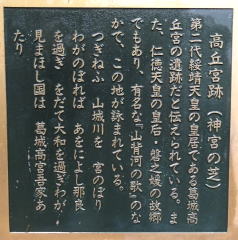 高丘宮跡（神宮の芝）
第二代綏靖天皇の皇居である葛城高
丘宮の遺跡だと伝えられている。ま
た、仁徳天皇の皇后・磐之媛の故郷
でもあり、有名な「山背河の歌」のな
かで、この地が詠まれている。
つぎねふ 山城川を 宮のぼり
わがのぼれば あをによし那良
を過ぎ をだて大和を過ぎわが
見まほし国は 葛城高宮吾家あ
たり